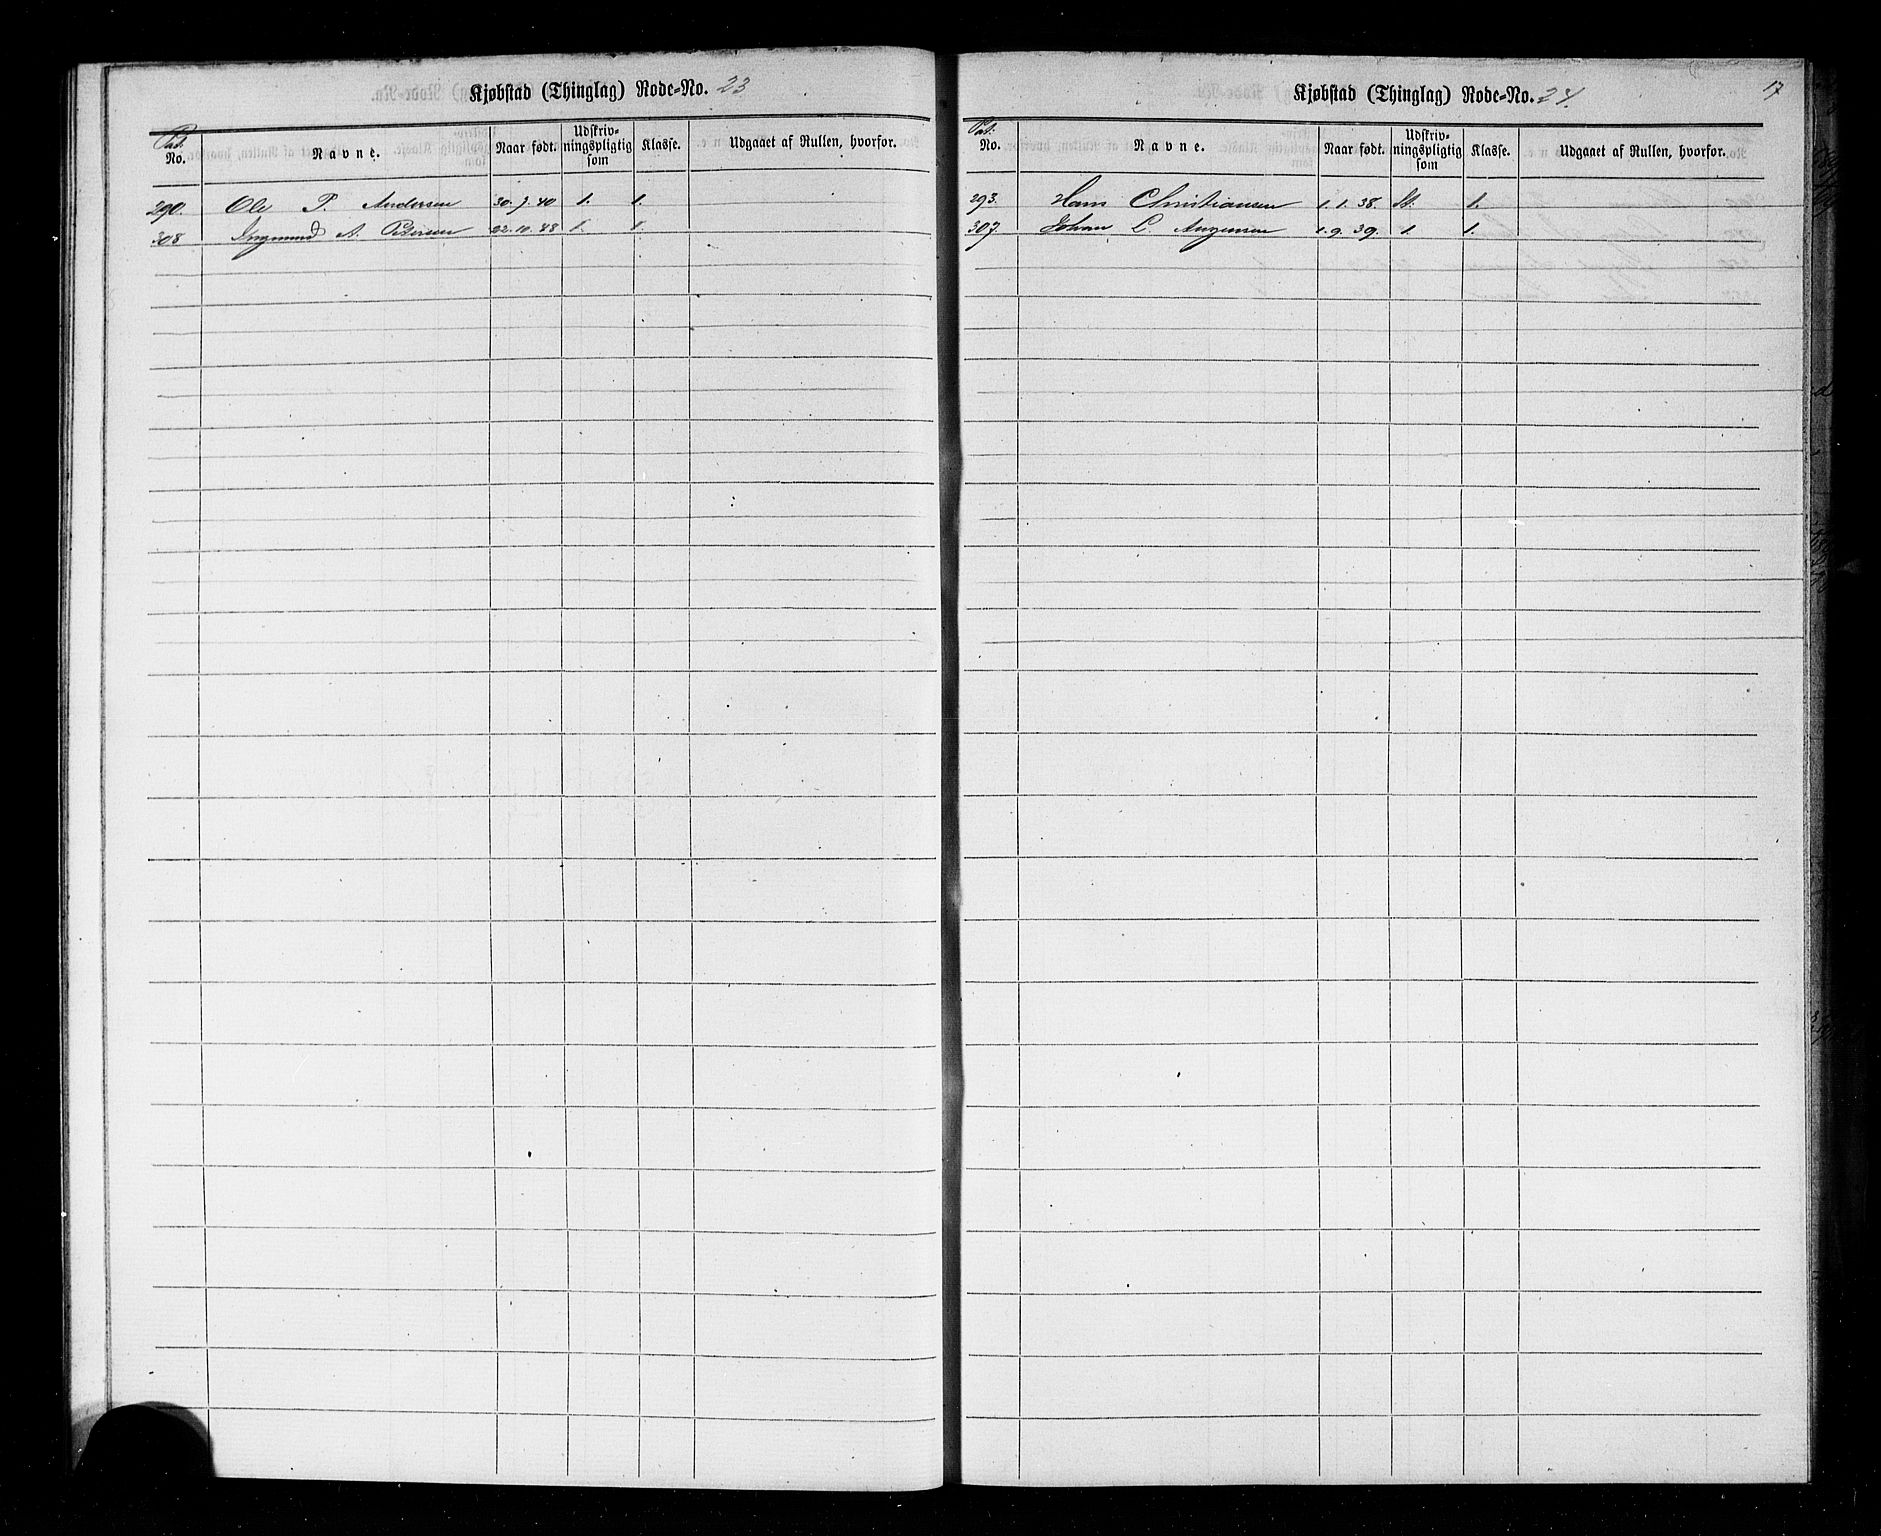 Kjøbstad (Thinglag) Rode-No. 23
Pat. No. Navne. Naar født. Udskriv-ningspligtig som Klasse. Udgaaet af Rullen, hvorfor.
290. Ole P. Andersen 30.9.40 1. 1.
308 Ingmund A. Petersen 22.10.48 1. 1.
Kjøbstad (Thinglag) Rode-No. 24. 17
Pat. No. Navne. Naar født. Udskriv-ningspligtig som Klasse. Udgaaet af Rullen, hvorfor.
293. Hans Christiansen 1.1.38. St. 1.
307. Johan L. 1.9.39. 1. 1.